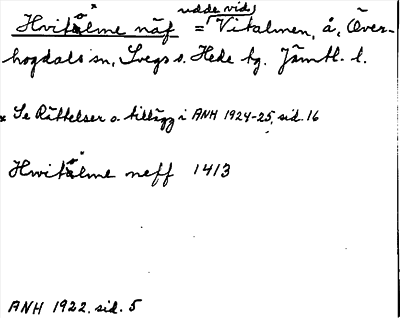 Hvitålme näf * = udde vid Vitalmen, å, Över-
hogdals sn, Svegs o. Hede tg. Jämtl. l.
* Se Rättelser o. tillägg i ANH 1924-25, sid. 16
Hwitålme neff * 1413
ANH 1922. sid. 5